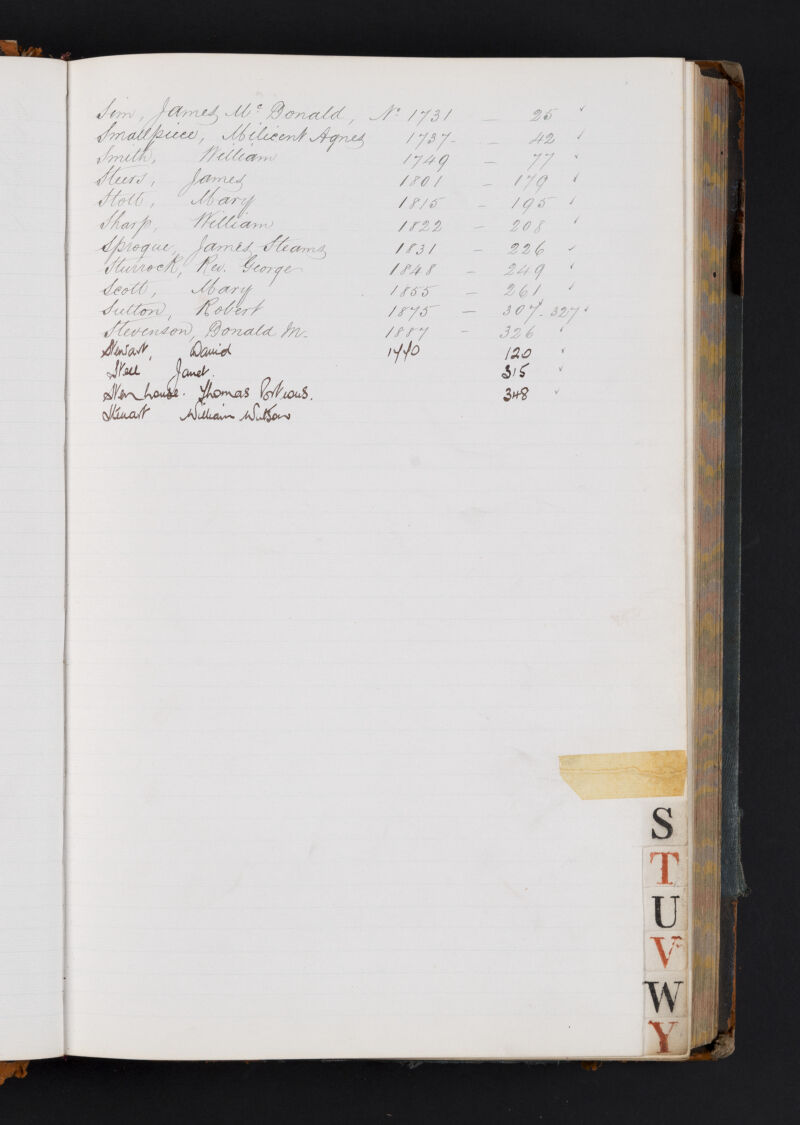 Sim, James Mc Donald, No 1731 — 25 ✓
Smallpiece, Milicent Agnes 1737 - — 42 ✓
Smith, William 1749 — 77 ✓
Steers, James 1801 — 179 ✓
Stott, Mary 1815 — 195 ✓
Sharp, William 1822 — 208 ✓
Sprogue, James Steams 1831 — 226 ✓
Sturrock, Rev. George 1848 — 249 ✓
Scott, Mary 1855 — 261 ✓
Sutton, Robert 1875 — 307 - 327 ✓
Stevenson, Donald M. 1887 — 326 ✓
Stewart, David 120 ✓
Steel Janet. 315 ✓
Stenhouse. Thomas Porteous. 348 ✓
Stewart William Watson
S
T
U
V
W
Y